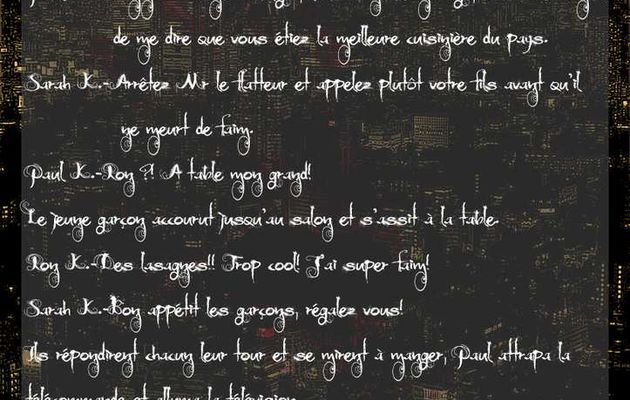 de me dire que vous étiez la meilleure cuisinière du pays.
Sarah K.-Arrêtez Mr le flatteur et appelez plutôt votre fils avant qu'il
ne meurt de faim.
Paul K.-Roy ?! A table mon grand!
Le jeune garçon accourut jusqu'au salon et s'assit à la table.
Roy K.-Des lasagnes!! Trop cool! J'ai super faim!
Sarah K.-Bon appétit les garçons, régalez vous!
Ils répondirent chacun leur tour et se mirent à manger, Paul attrapa la
télécommande et alluma la télévision